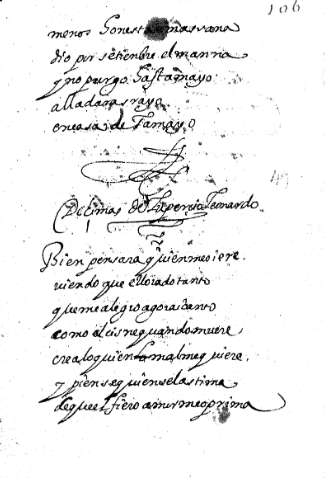 106
menos honesta mas sana
dio por setienbre el
y no purgo hasta mayo
alla daras rayo
en casa de Tamayo
Decimas de Lupercio Leonardo
1
Bien pensara quien me oiere
viendo que e llorado tanto
que me alegro agora i canto
como el cisne quando muere,
crealo quien mal me quiere,
y piense quien se lastima
de que el fiero amor me oprima